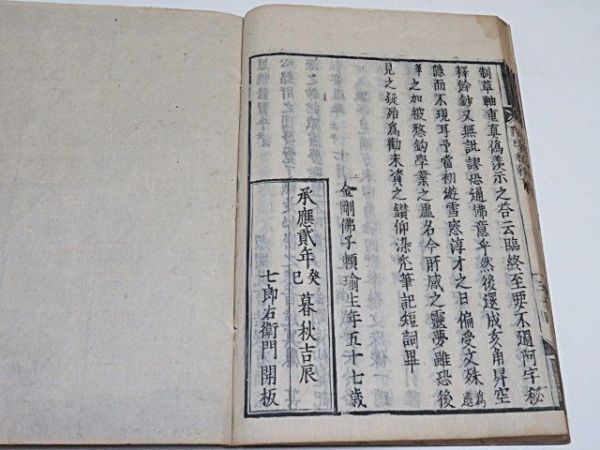 制草軸重真偽羨示之答云臨終至要不過阿字秘
釋餘鈔又無訛謬恐通佛意乎然後還成亥甬昇空
隠而不現耳予當初遊雪窓淳才之日偏受文殊為
之加被愁鈎學業之盧名今肝感之靈夢雖恐後
見之疑殆為勸未資之鑚仰染禿筆記短詞畢
金剛佛子頼瑜生年五十七歳
承應貳年癸巳暮秋吉辰
七郎右衛門開板